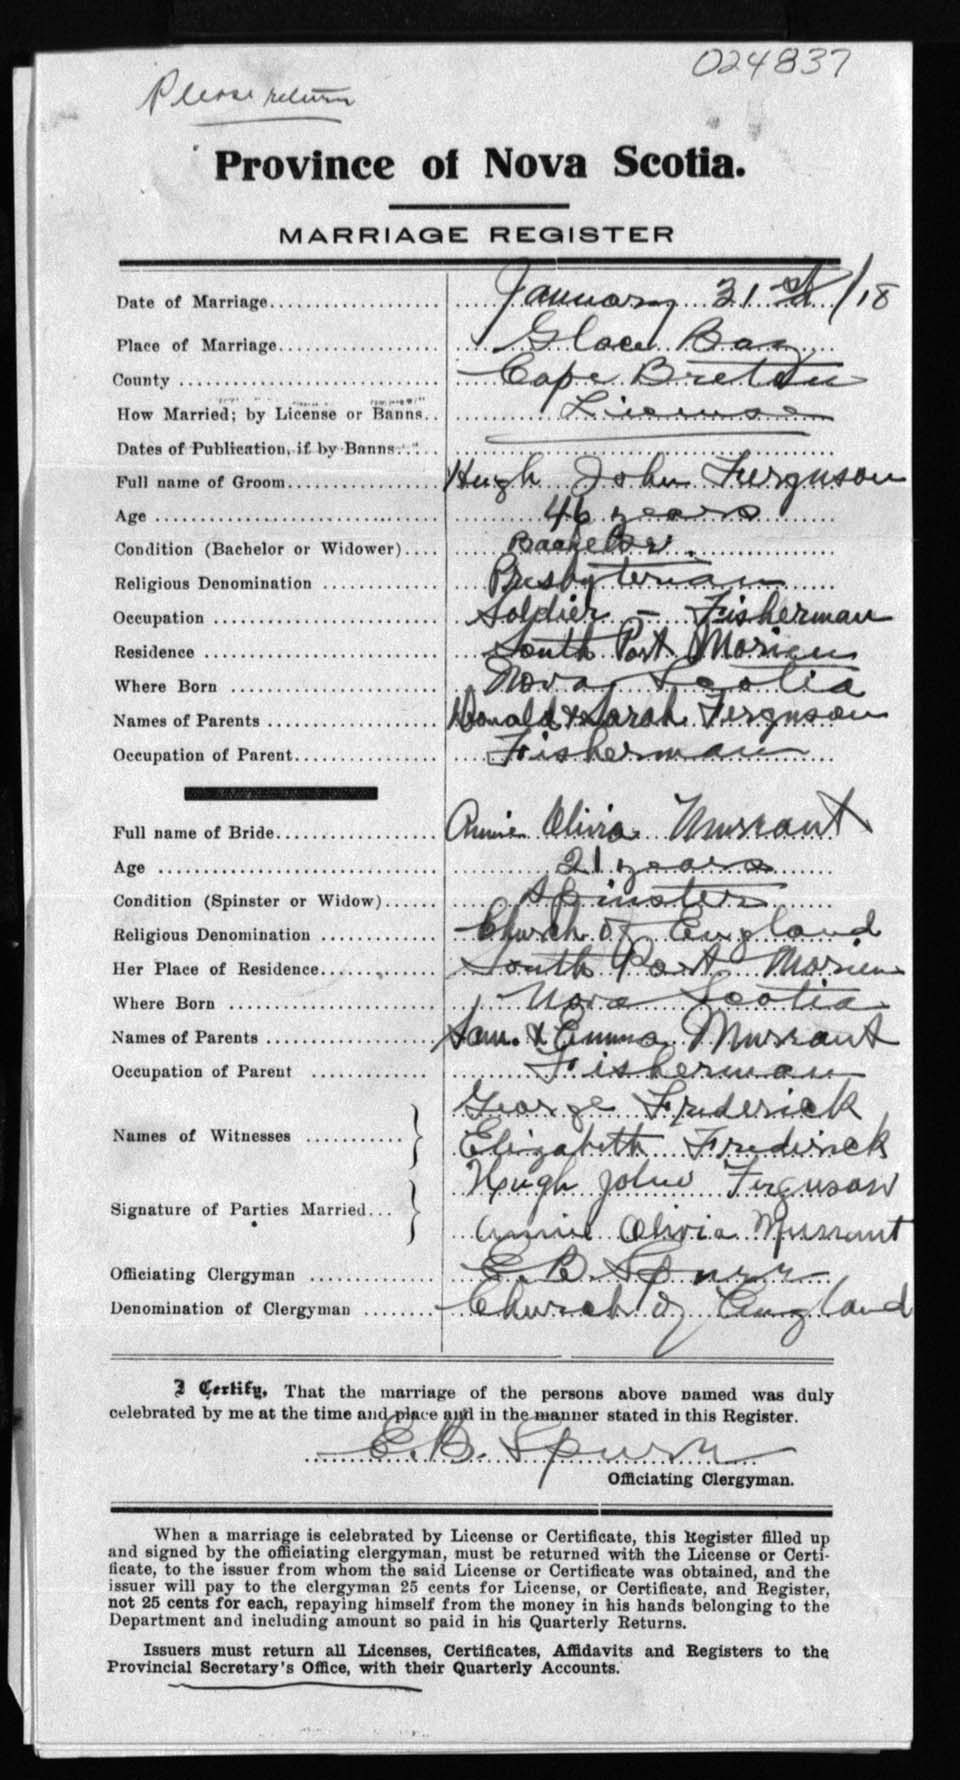 024837
Please return
Province of Nova Scotia.
MARRIAGE REGISTER
Date of Marriage.................... January 31st /18
Place of Marriage................... Glace Bay
County ............................. Cape Breton
How Married; by License or Banns.. License
Dates of Publication, if by Banns.....
Full name of Groom.................. Hugh John Ferguson
Age ................................ 46 years
Condition (Bachelor or Widower).... Bachelor.
Religious Denomination ............. Presbyterian
Occupation ......................... Soldier - Fisherman
Residence .......................... South Port Morien
Where Born ......................... Nova Scotia
Names of Parents ................... Donald & Sarah Ferguson
Occupation of Parent................ Fisherman
Full name of Bride.................. Annie Olivia Murrant
Age ................................ 21 years
Condition (Spinster or Widow)...... Spinster
Religious Denomination ............. Church of England
Her Place of Residence.............. South Port Morien
Where Born ......................... Nova Scotia
Names of Parents ................... Sam. & Emma Murrant
Occupation of Parent ............... Fisherman
George Frederick
Names of Witnesses .......... } Elizabeth Frederick
Hugh John Ferguson
Signature of Parties Married... } Annie Olivia Murrant
Officiating Clergyman .............. E. B. Spurr
Denomination of Clergyman ........ Church of England
I Certify, That the marriage of the persons above named was duly
celebrated by me at the time and place and in the manner stated in this Register.
E. B. Spurr
Officiating Clergyman.
When a marriage is celebrated by License or Certificate, this Register filled up
and signed by the officiating clergyman, must be returned with the License or Certi-
ficate, to the issuer from whom the said License or Certificate was obtained, and the
issuer will pay to the clergyman 25 cents for License, or Certificate, and Register,
not 25 cents for each, repaying himself from the money in his hands belonging to the
Department and including amount so paid in his Quarterly Returns.
Issuers must return all Licenses, Certificates, Affidavits and Registers to the
Provincial Secretary's Office, with their Quarterly Accounts.